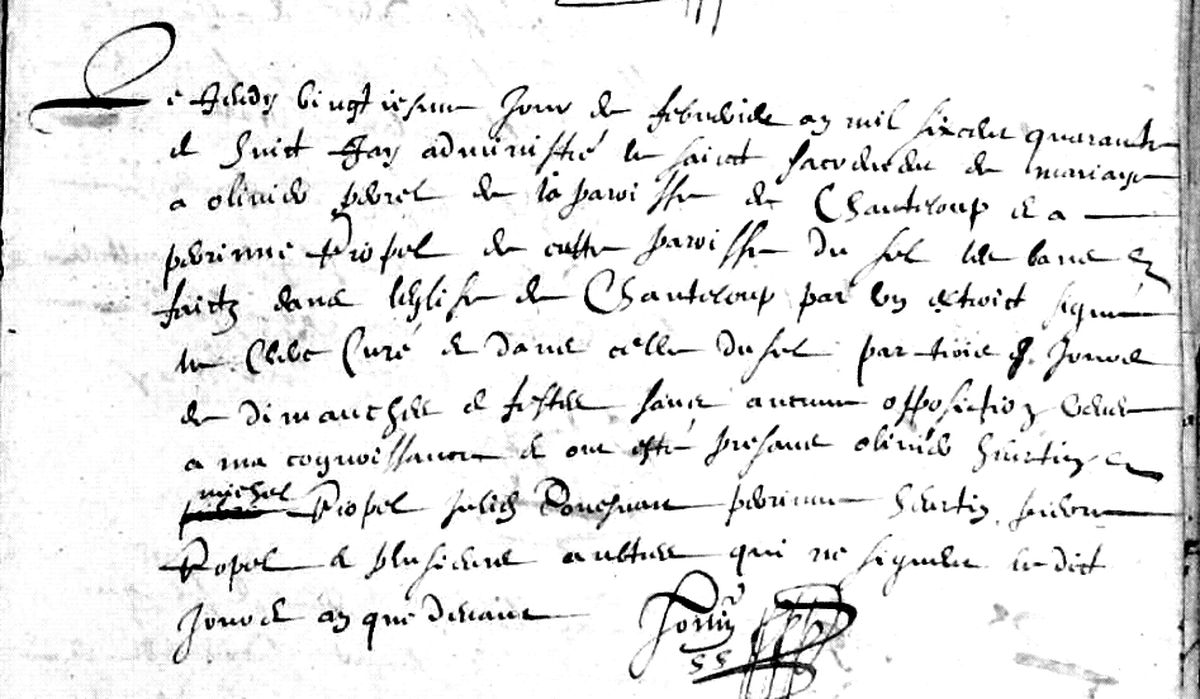 Le Jeudy vingtiesme jour de febvrier an mil six cent quarante
et huict Jay administré le sainct sacrement de mariage
a olivier perrel de la paroisse de Chanteloup et a
perinne Ropel de cette paroisse du sel les bans
faictz dans leglise de Chanteloup par un extroict signé
le Clerc Curé et dans celle du sel par trois jours
de dimanches et festes sans aucune opposition venue
a ma cognoissance et ont esté presans olivier hurtin
michel Ropel Julien perinne hurtin
Ropel et plusieurs aultres qui ne signent ledict
jour et an que devant